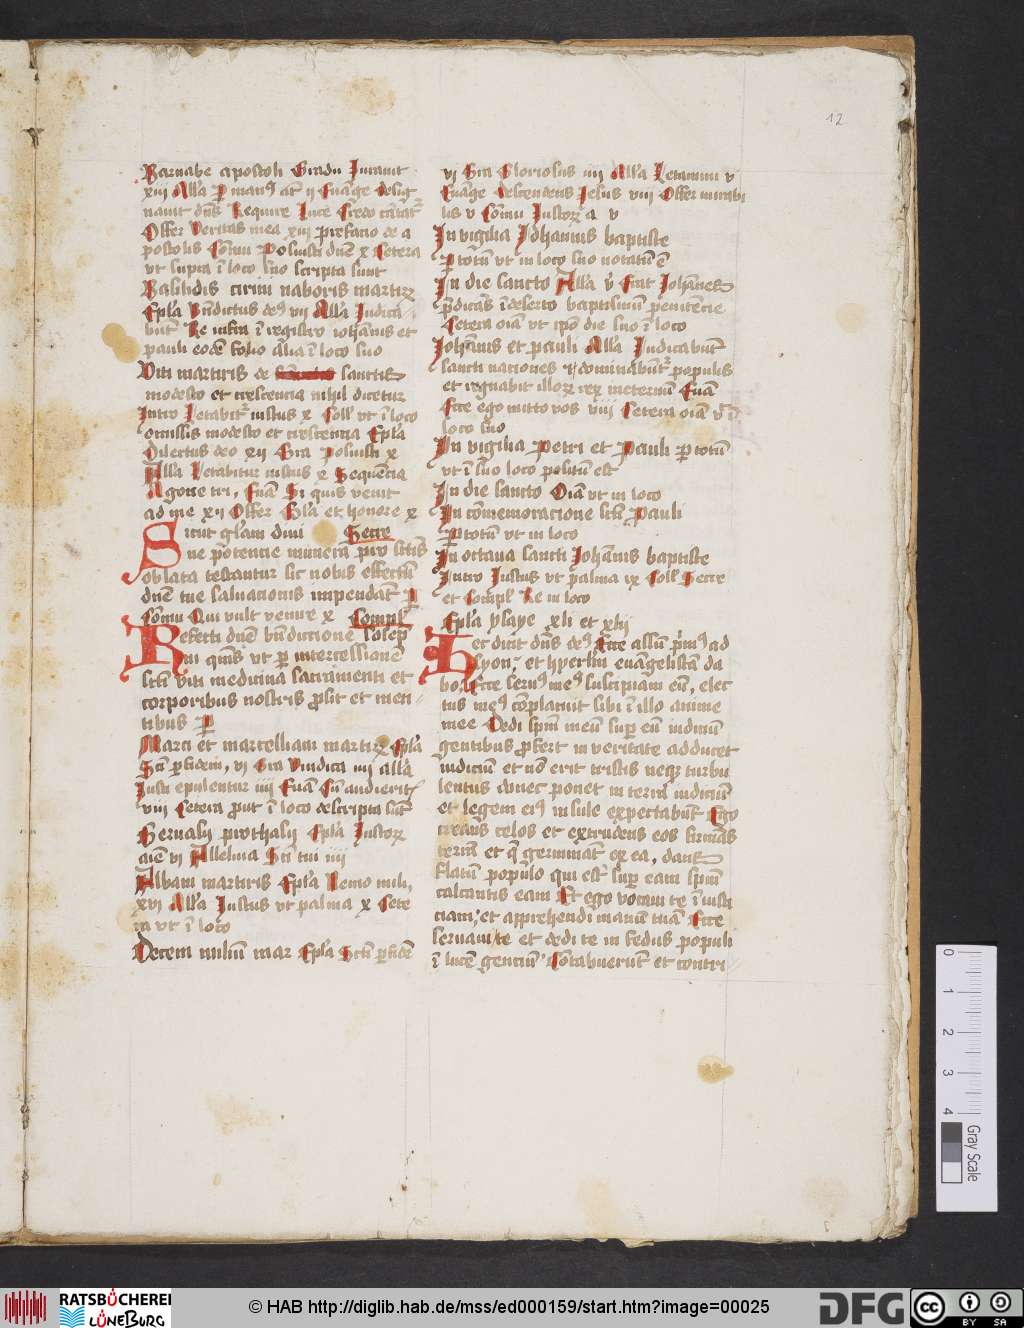 12
Barnabe apostoli Gradu Iurauit
xiiii Alla P manꝰ at ii Euāge desig
nauit dn̄s Require luce Credo
Offer Veritas mea xiii prefacio de a
postolis Cōmu Vos qui secuti Cetera
vt supra ī loco suo scripta sunt
Basilidis cirini naboris martirꝝ
Epl̄a Bn̄dictus deꝰ vii All̄a Iudica
bunt Re infra ī registro iohannis et
pauli eodē folio alia ī loco suo
Viti martiris de sanctis
modesto et crescencia nihil dicetur
Intro Letabitᷣ iustus x Coll̄ vt ī loco
omissis modesto et crescencia Epl̄a
Dilectus deo xii Gra Posuisti x
All̄a Letabitur iustus x Sequēcia
Agone tri, Euā Si quis venit
ad me xii Offer Gl̄a et honore x
Sicut gl̄am diui Secre
ne potencie munera pro sc̄tis
oblata testantur sic nobis effectū
dn̄e tue saluacionis impendāt P
Cōmu Qui vult venire x Compl̄
Refecti dn̄e bn̄diccione
mꝰ quis vt P intercessionē
sc̄ti viti medicina sacramenti et
corporibus nostris ꝓsit et men
tibus P
Marci et marcelliani martirꝝ Epl̄a
Sc̄ti P fidem, vi Gra Vindica iiii all̄a
Iusti epulentur iiii Euā Cū audieritis
viii Cetera ꝓut ī loco descripta sūt
Geruasii prothasii Epl̄a Iustorꝝ
aīe vi Alleluia Sc̄ti tui iiii
Albani martiris Epl̄a Nemo mili,
xvi All̄a Iustus vt palma x Cete
ra vt ī loco
Decem miliū mar Epl̄a Sc̄ti P fidē
vi Gra Gloriosus iiii All̄a Letamini v
Euāge descendens Iesus viii Offer mirabi
lis v Cōmu Iustorꝝ a v
In vigilia Iohannis baptiste
P totū vt in loco suo notatū ē
In die sancto All̄a v̄ Fuit Iohannes
p̄dicās ī deserto baptismū penitencie
Cetera oīa vt ip̄o die suo ī loco
Iohannis et pauli All̄a Iudicabūt
sancti naciones et dominabūtᷣ populis
et regnabit illorꝝ rex ineternū Euā
Ecce ego mitto vos viii Cetera oīa vt ī
loco suo
In vigilia Petri et Pauli P totū
vt ī suo loco positū est
In die sancto Oīa vt in loco
In cōmemoracione sc̄ti Pauli
P totū vt in loco
In octaua sancti Iohannis baptiste
Intro Iustus vt palma ix Coll̄ Secre
et Compl̄ Re in loco
Epl̄a ysaye xli et xlii
Hec dicit dn̄s deꝰ Ecce assū p̄mꝰ ad
syon, et hierl̄m euāgelistā da
bo, Ecce seruꝰ meꝰ suscipiam eū, elec
tus meꝰ cōplacuit sibi ī illo anime
mee Dedi sp̄m meū suꝑ eū iudiciū
gentibus ꝓfert in veritate adducet
iudiciū et nō erit tristis neqꝫ turbu
lentus donec ponet in terra iudiciū
et legem eiꝰ insule expectabūt Ego
creans celos et extendens eos firmās
terrā et q̄ germināt ex ea, dans
flatū populo qui est suꝑ eam sp̄m
calcantis eam Et ego vocaui te ī iusti
ciam, et apprehendi manū tuā Ecce
seruaui te et dedi te in fedus populi
ī lucē genciū Cōtabuerūt et contri
0 1 2 3 4
Gray Scale
RATSBÜCHEREI
LÜNEBURG
© HAB http://diglib.hab.de/mss/ed000159/start.htm?image=00025
DFG
cc BY SA